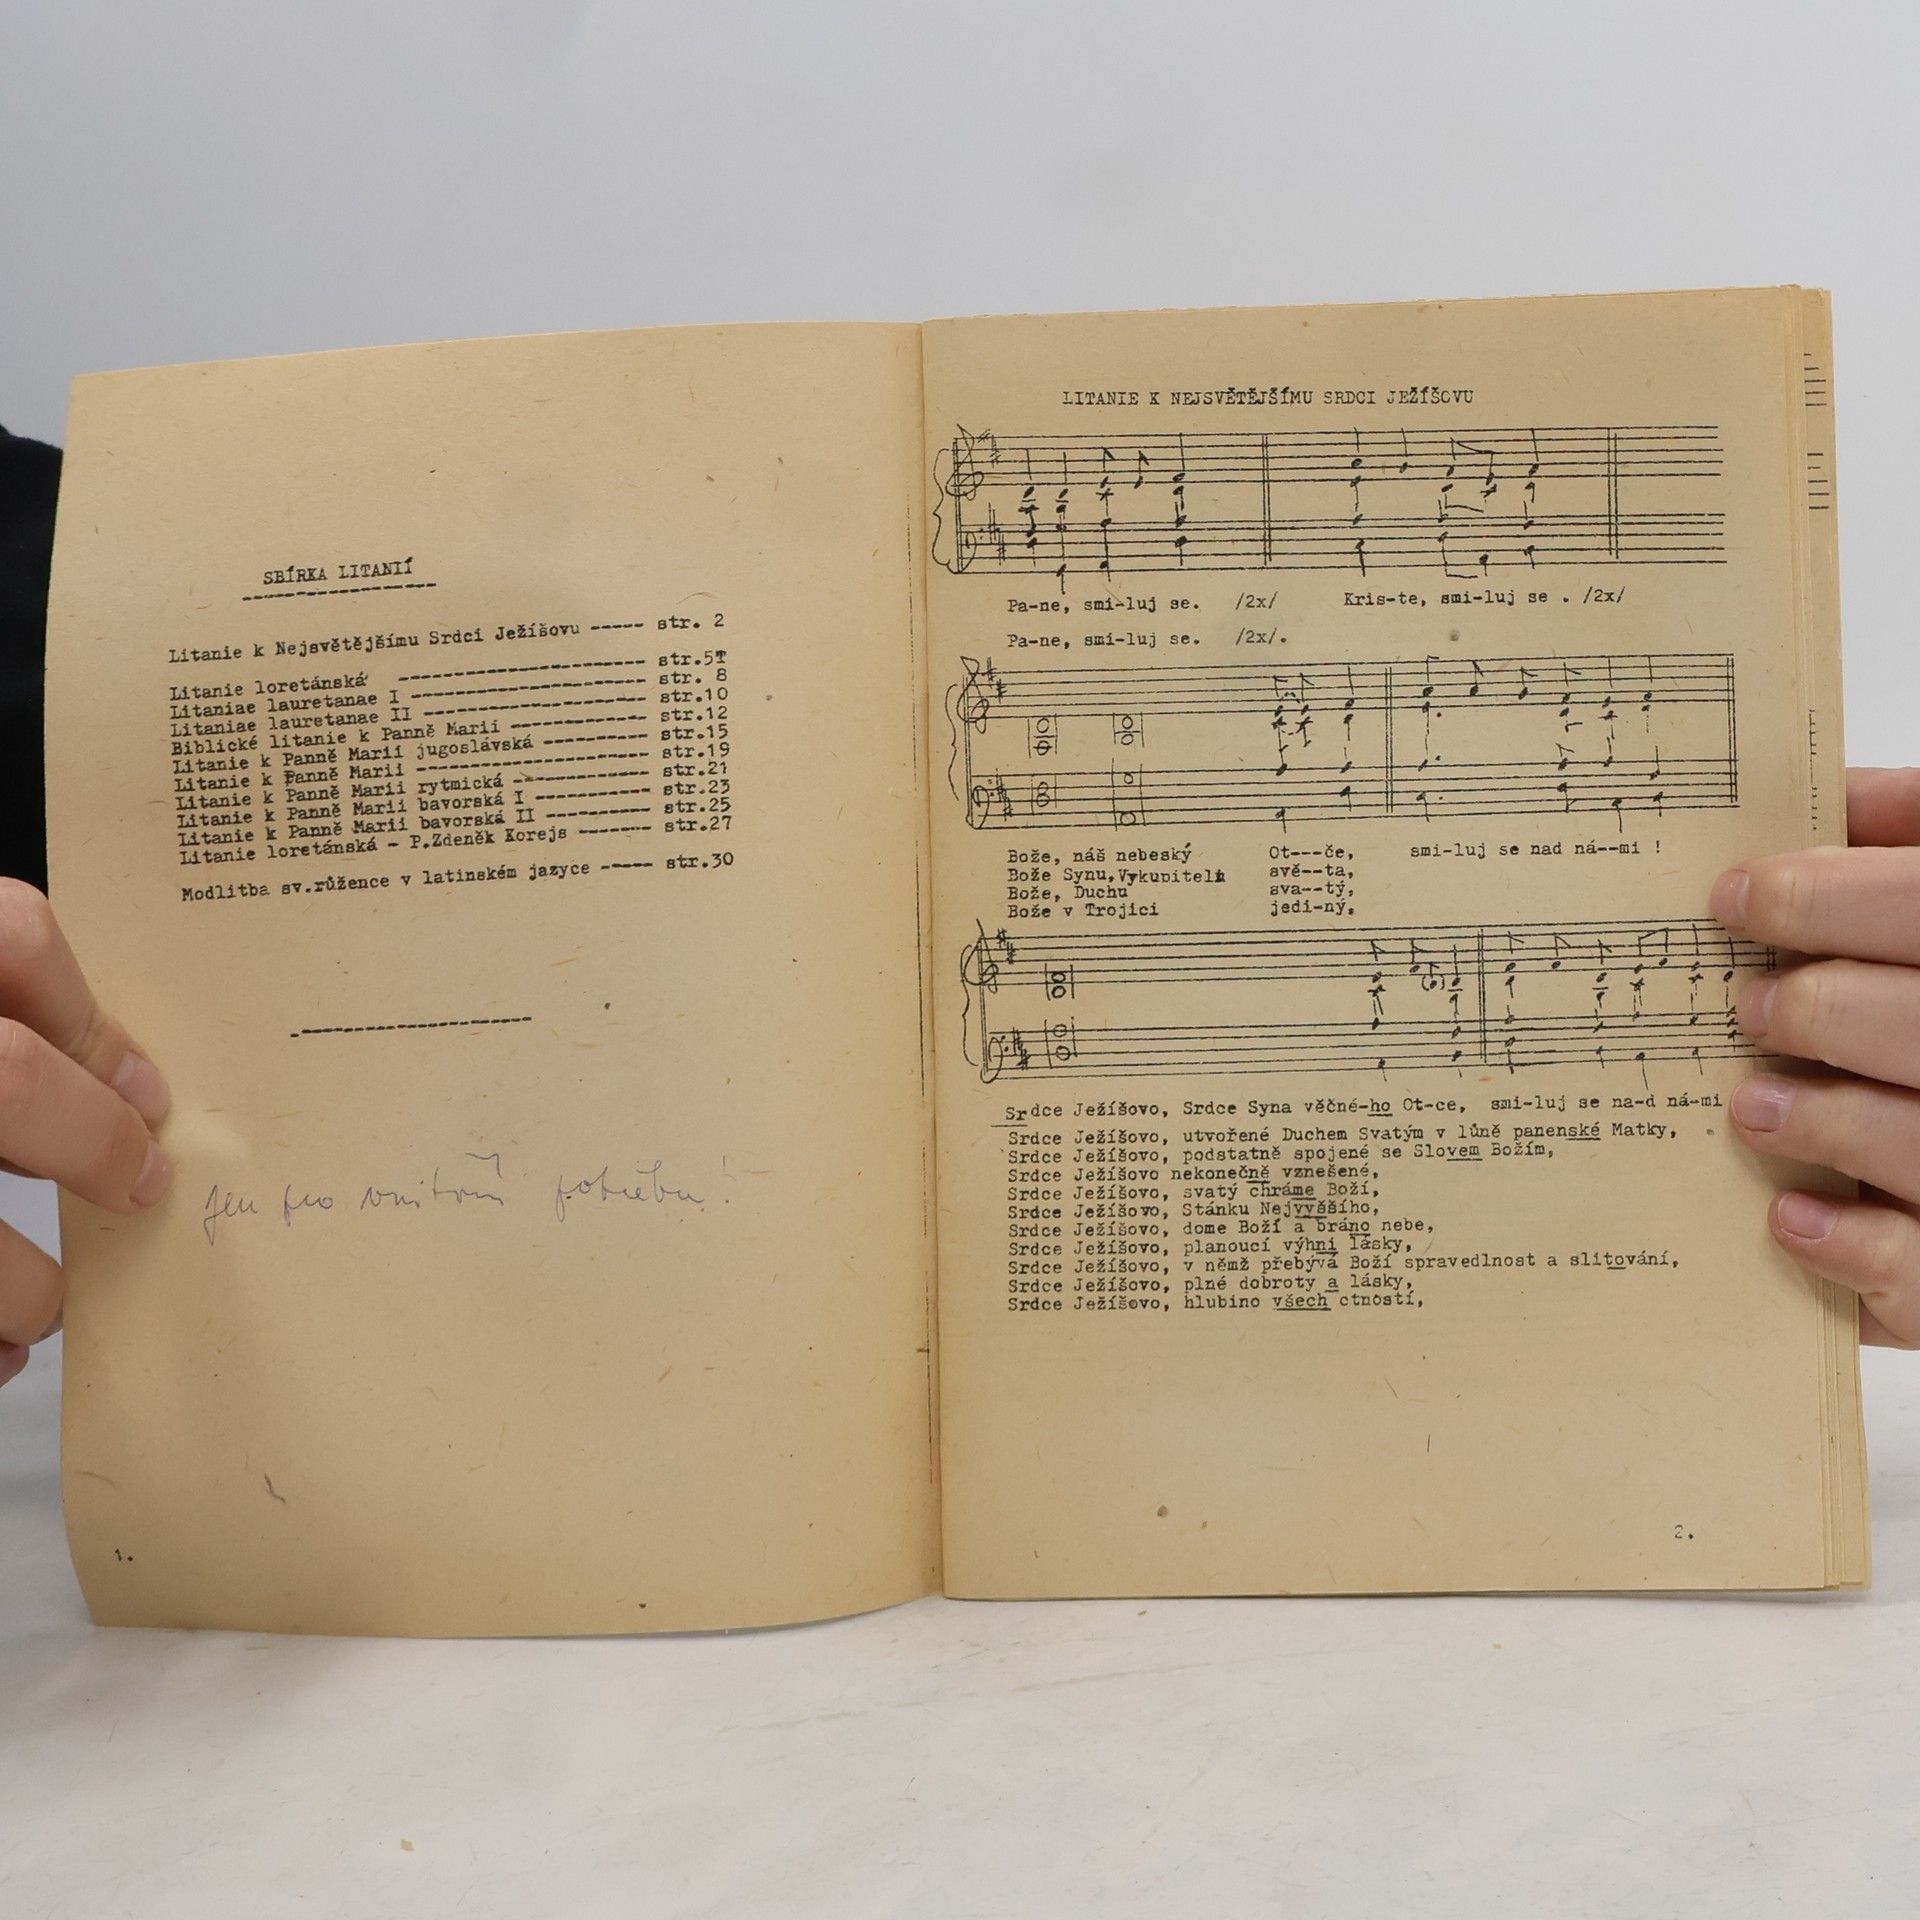 SBÍRKA LITANIÍ
Litanie k Nejsvětějšímu Srdci Ježíšovu ----- str. 2
Litanie loretánská ---------------------- str.5
Litaniae lauretanae I --------------------- str. 8
Litaniae lauretanae II -------------------- str.10
Biblické litanie k Panně Marii ------------ str.12
Litanie k Panně Marii jugoslávská --------- str.15
Litanie k Panně Marii --------------------- str.19
Litanie k Panně Marii rytmická ------------ str.21
Litanie k Panně Marii bavorská I ---------- str.23
Litanie k Panně Marii bavorská II --------- str.25
Litanie loretánská - P.Zdeněk Korejs ------ str.27
Modlitba sv.růžence v latinském jazyce ----- str.30
Jen pro vnitřní potřebu!
1.
LITANIE K NEJSVĚTĚJŠÍMU SRDCI JEŽÍŠOVU
Pa-ne, smi-luj se. /2x/ Kris-te, smi-luj se . /2x/
Pa-ne, smi-luj se. /2x/.
Bože, náš nebeský Ot---če, smi-luj se nad ná--mi !
Bože Synu,Vykupiteli svě--ta,
Bože, Duchu sva--tý,
Bože v Trojici jedi-ný,
Srdce Ježíšovo, Srdce Syna věčné-ho Ot-ce, smi-luj se na-d ná-mi
Srdce Ježíšovo, utvořené Duchem Svatým v lůně panenské Matky,
Srdce Ježíšovo, podstatně spojené se Slovem Božím,
Srdce Ježíšovo nekonečně vznešené,
Srdce Ježíšovo, svatý chráme Boží,
Srdce Ježíšovo, Stánku Nejvyššího,
Srdce Ježíšovo, dome Boží a bráno nebe,
Srdce Ježíšovo, planoucí výhni lásky,
Srdce Ježíšovo, v němž přebývá Boží spravedlnost a slitování,
Srdce Ježíšovo, plné dobroty a lásky,
Srdce Ježíšovo, hlubino všech ctností,
2.